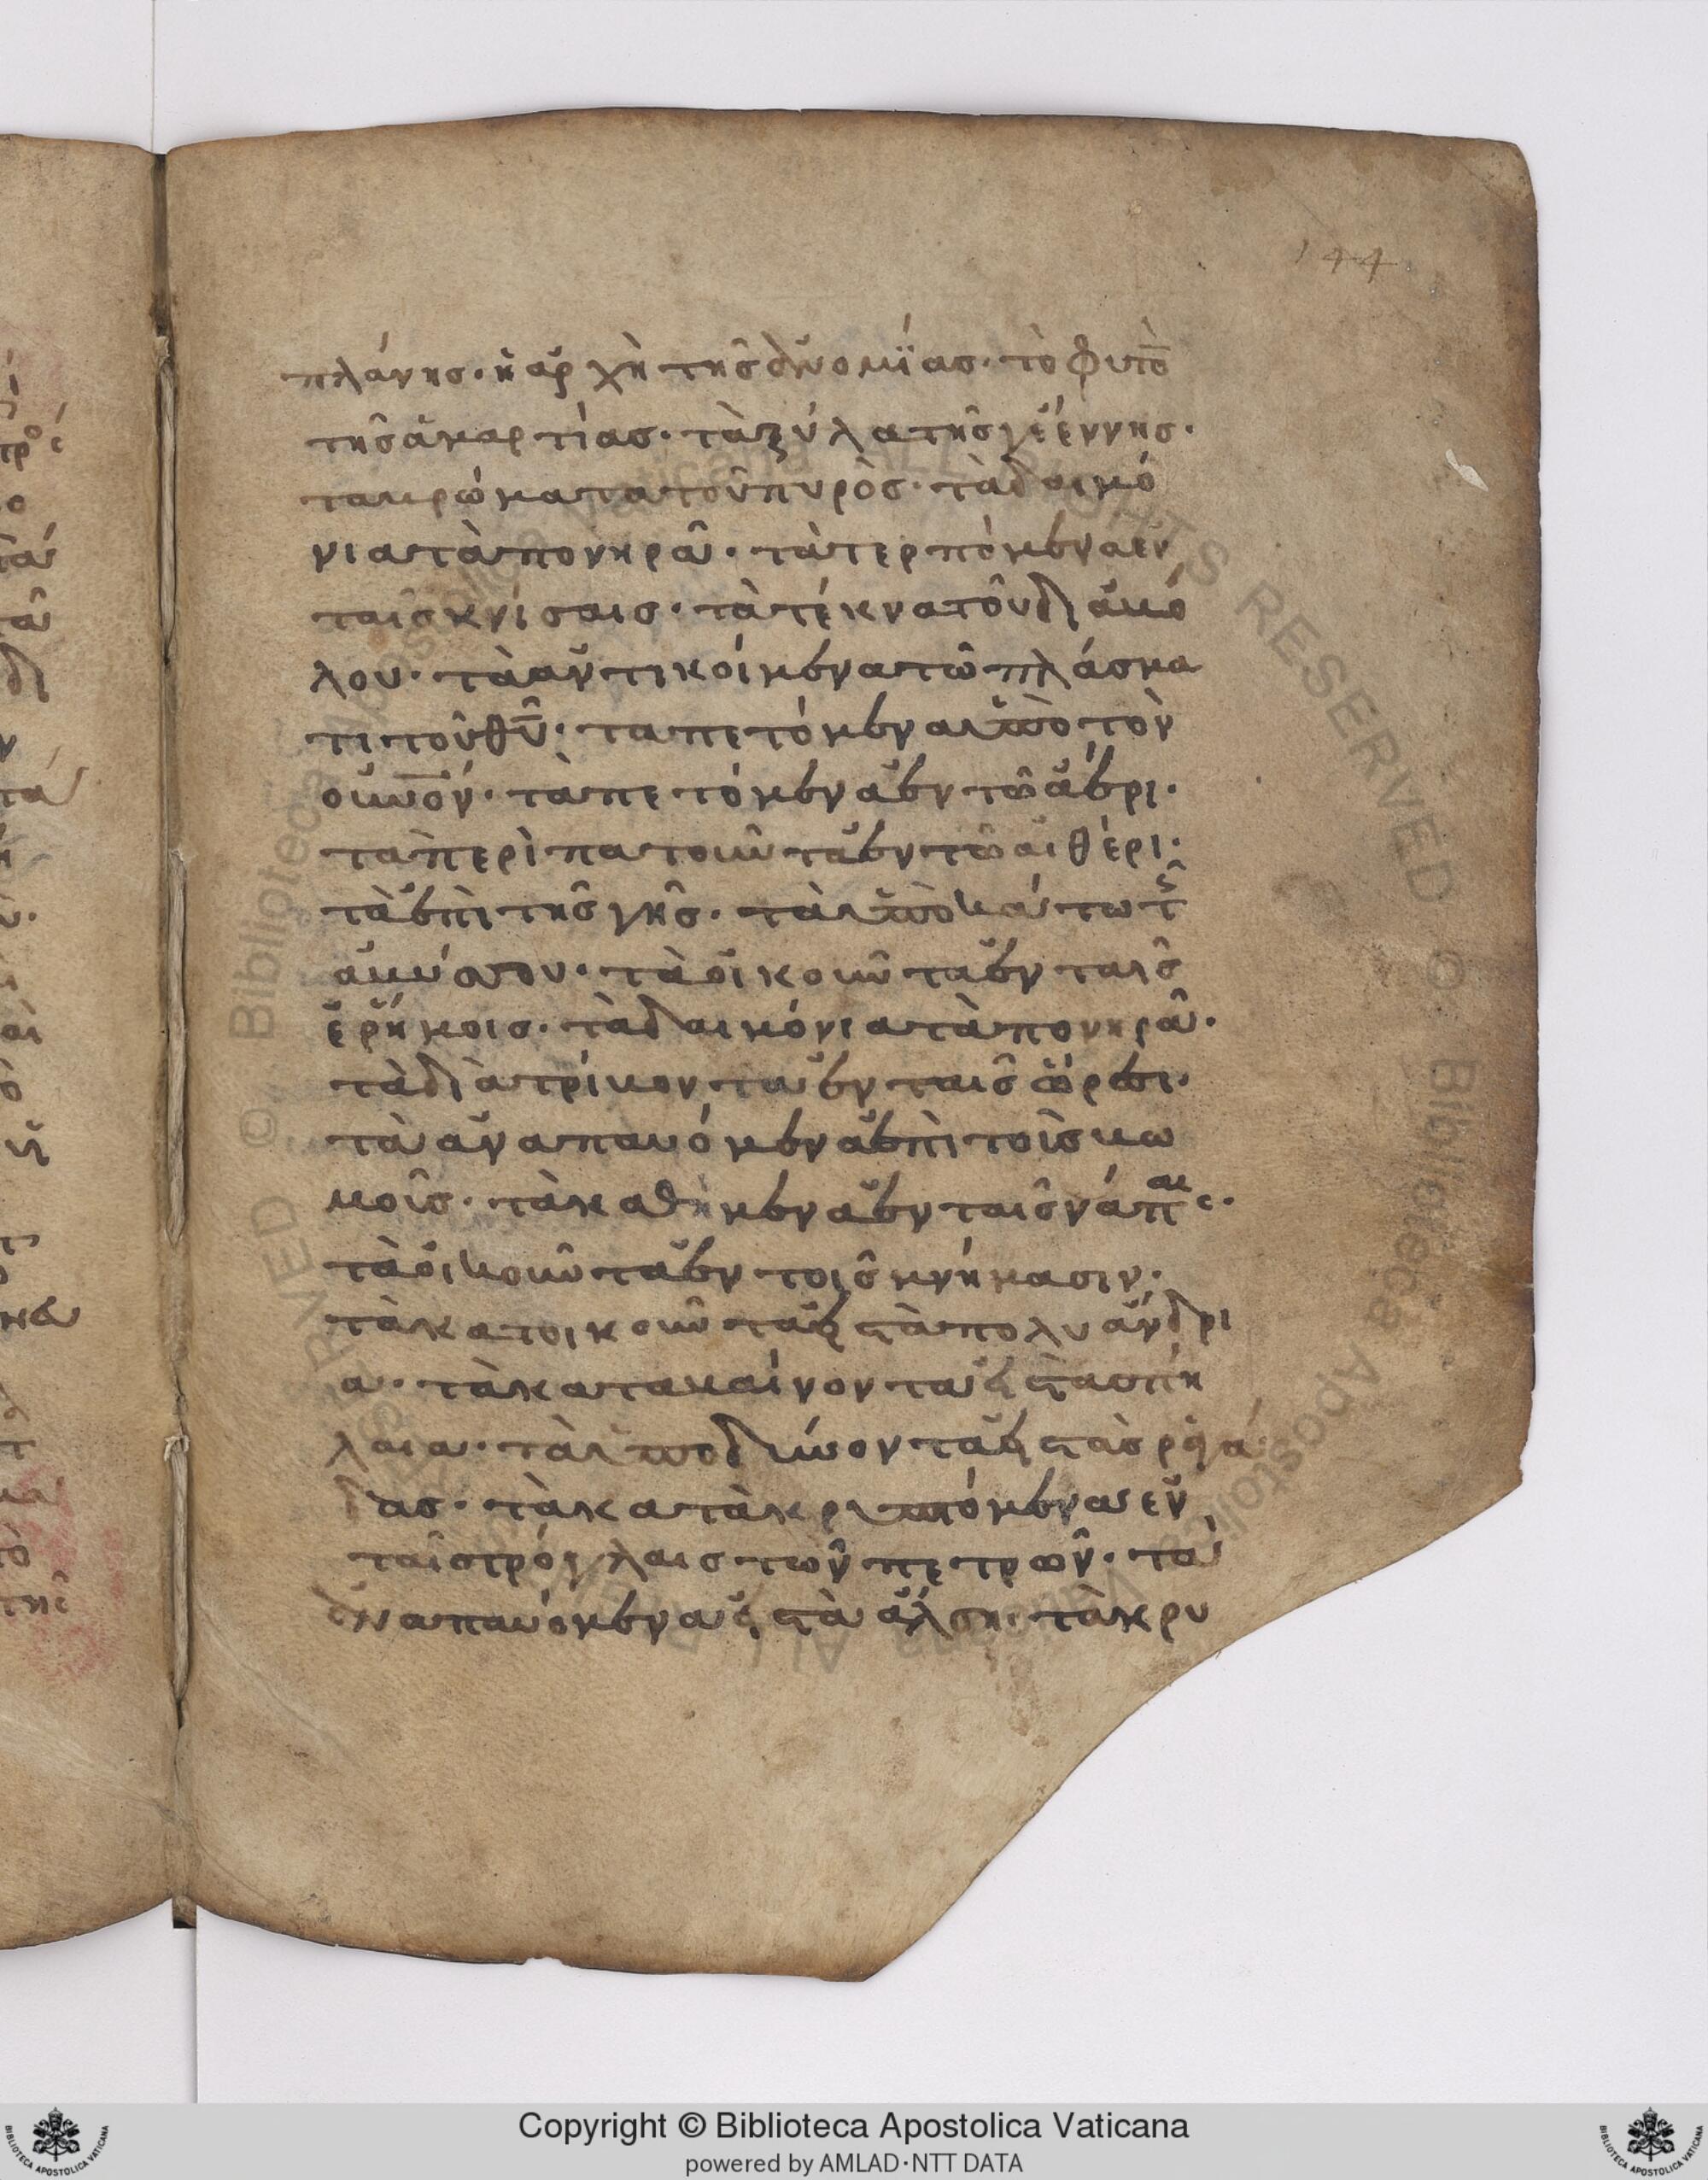 144
πλάνης· ἡ ἀρχὴ τῆς ἀνομϊας· τὸ φυτὸ
τῆς ἁμαρτίας· τὰ ξύλα τῆς γεέννης·
τα βρώματα τοῦ πυρὸς· τὰ δαιμό
νια τὰ πονηρᾶ· τὰ τερπόμενα εν
ταῖς κνίσαις· τὰ τέκνα τοῦ διαβό
λου· τὰ αντικοίμενα τῶ πλάσμα
τι τοῦ θυ̅· τα πετόμενα ὑπὸ τὸν
οὐνο̅ν· τὰ πετόμενα ἐν τῶ ἀέρι·
τα περὶπατοῦντα ἐν τῶ αἰθέρι·
τὰ ἐπὶ τῆς γῆς· τὰ ὑπὸ κάτω τῆς
ἀβύσσου· τὰ οἰκοῦντα ἐν ταῖς
ἐρήμοις· τὰ δαιμόνια τὰ πονηρᾶ·
τὰ διατρίβοντα ἐν ταῖς ὥρεσι·
τὰ ἀναπαυόμενα ἐπὶ τοῖς βω
μοῖς· τὰ καθήμενα ἐν ταῖς νάπαις·
τὰ οἰκοῦντα ἐν τοῖς μνήμασιν·
τὰ κατοικοῦντα εἰς τὰ πολυάνδρι
α· τὰ καταβαίνοντα εἰς τὰ σπή
λαια· τὰ ὑποδύνοντα εἰς τὰς ῥαγά
δας· τὰ κατὰκρυπτόμενα εν
ταῖς τρόγλαις τῶν πετρῶν· τὰ
ἀναπαυόμενα εἰς τὰ ἄλση· τὰ κρυ
Copyright © Biblioteca Apostolica Vaticana
powered by AMLAD·NTT DATA